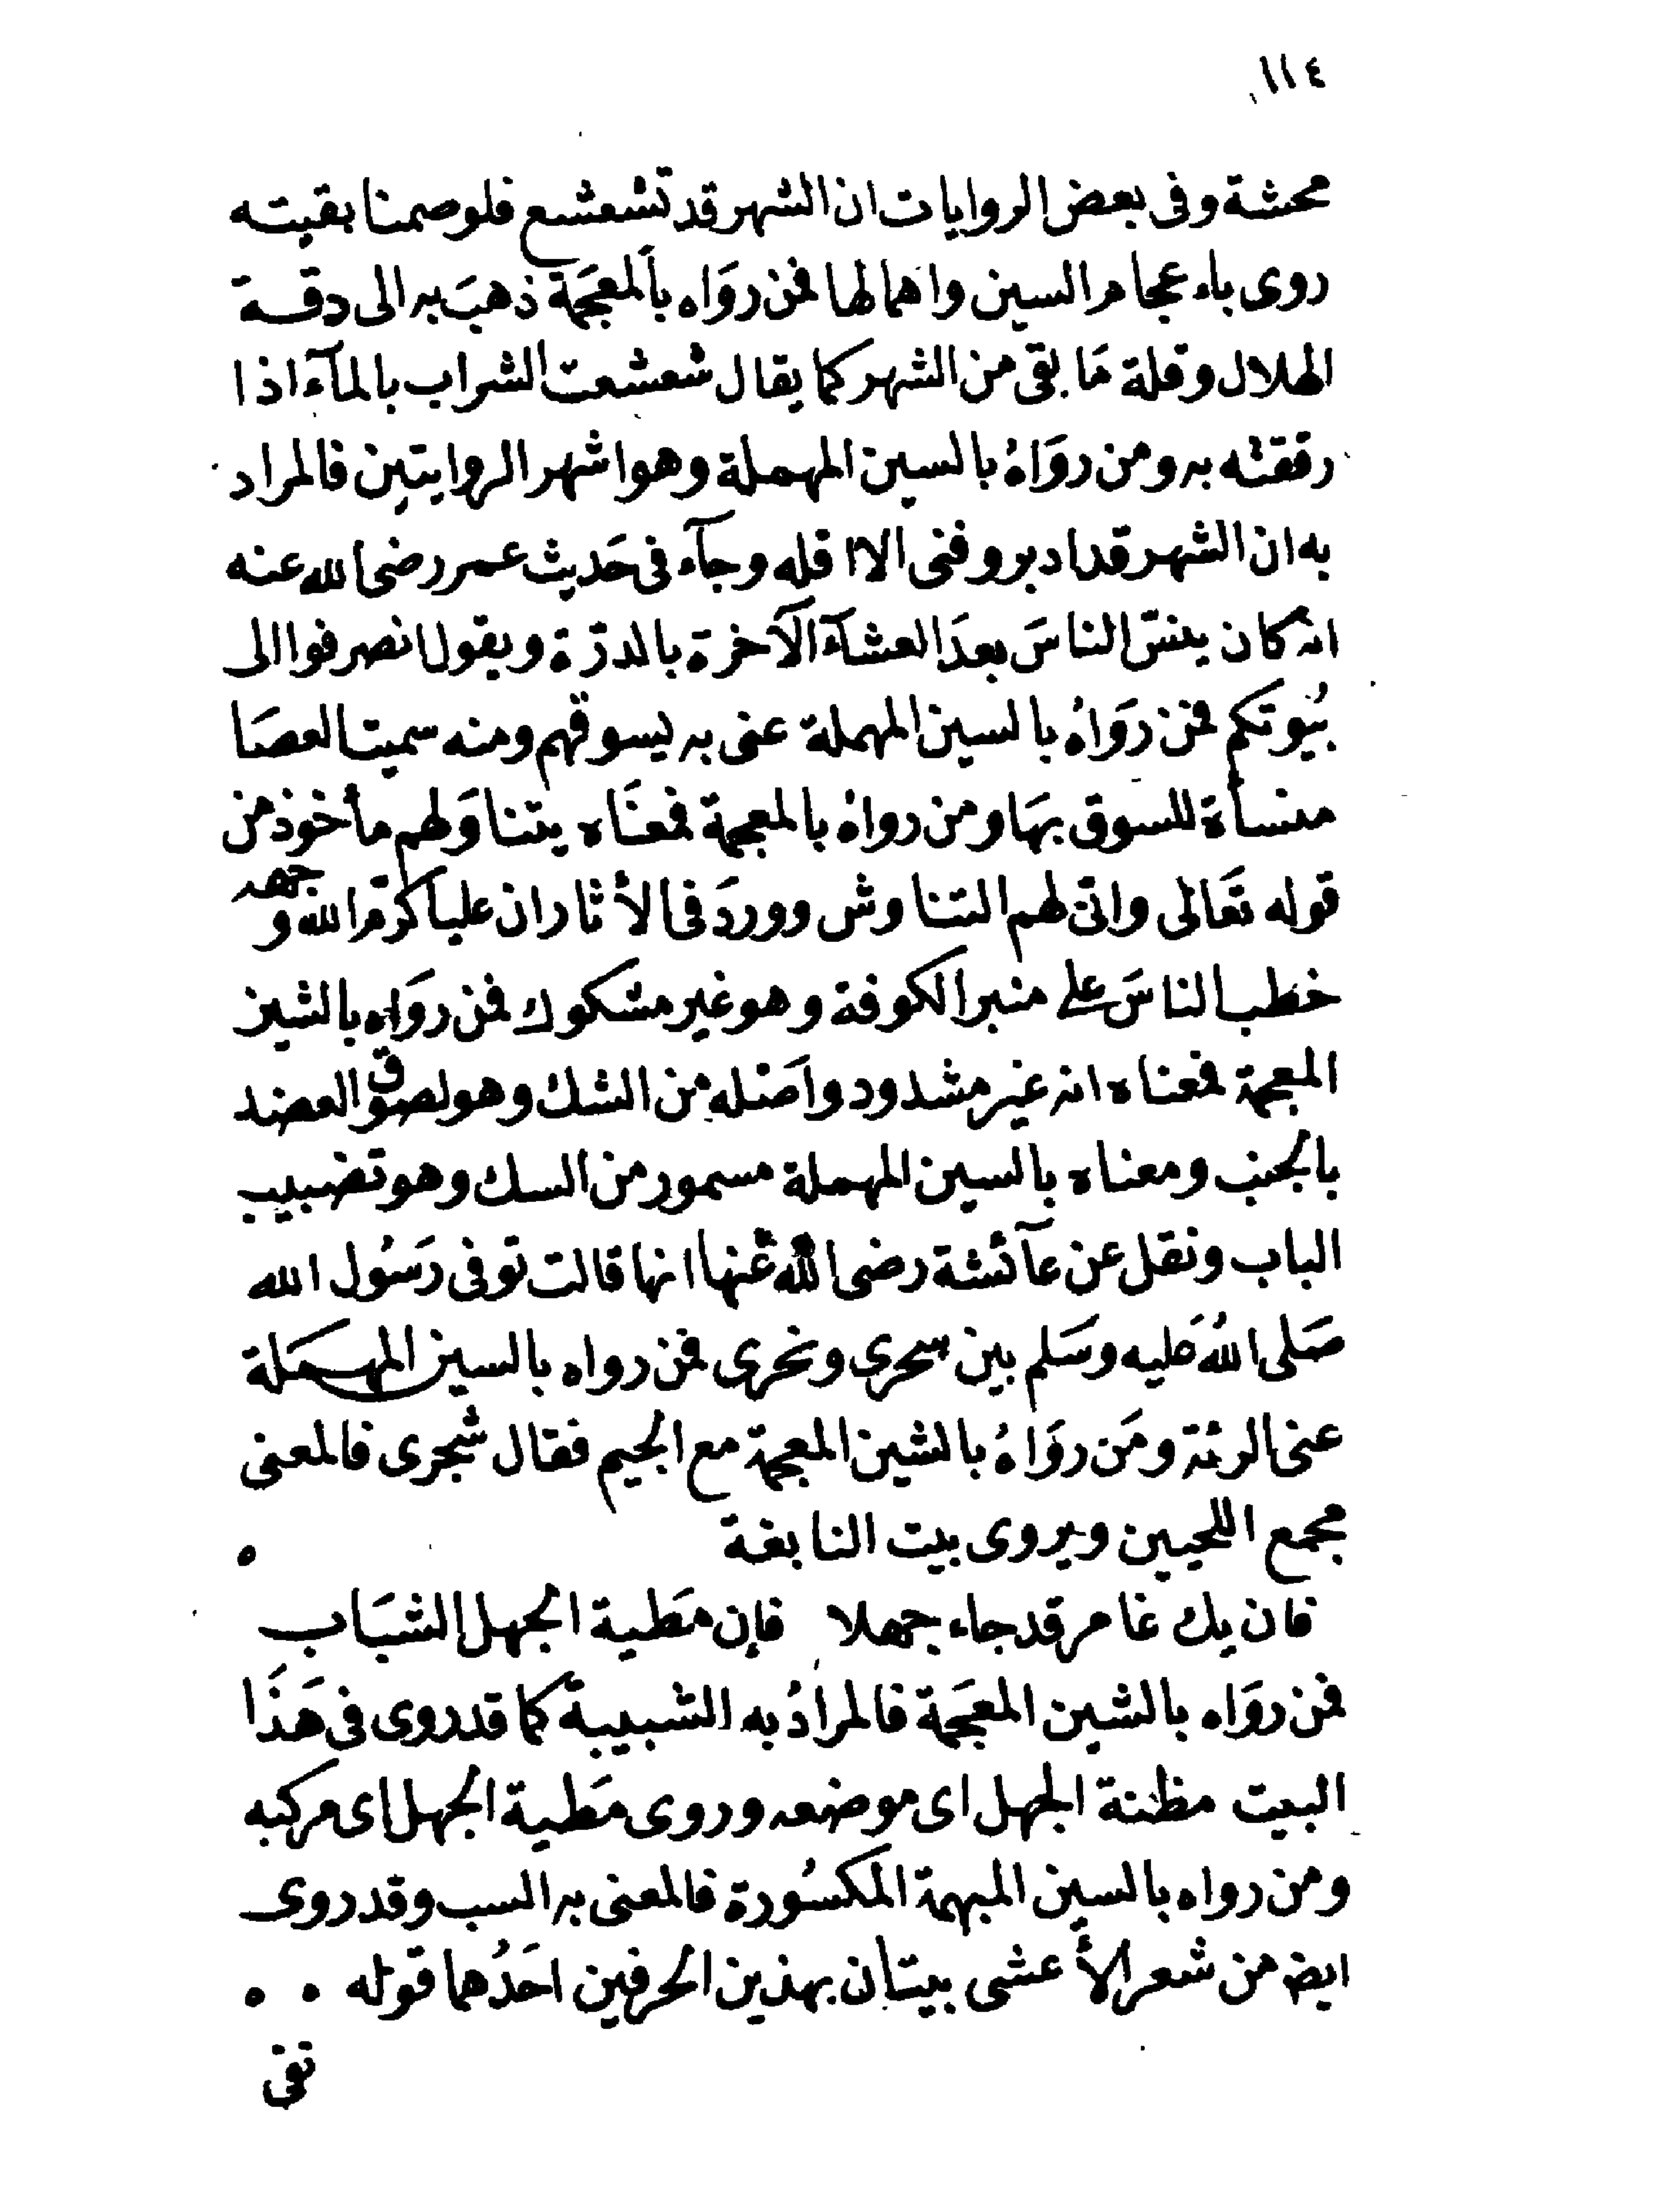 ١١٤
محشة وفى بعض الروايات ان الشهر قد تشعشع فلو صمنا بقيته
روى باء عجام السين واهمالها فمن روَاه بالمعجَمة ذهبَ به الى دقة
الهلال وقلة مَا بقى من الشهر كما يقال شعشعت الشراب بالمآء اذا
رققته به ومن روَاهُ بالسين المهملة وهو اشهر الروايتين فالمراد
به ان الشهر قد ادبر وفنى الا اقله وجآء فى حَديث عمر رضى الله عنه
انه كان ينسّ الناسَ بعدَ العشآء الآخرة بالدرّة ويقول انصرفوا الى
بُيوتكم فمن روَاهُ بالسين المهملة عنى به يسوقهم ومنه سميت العصَا
منسأة للسوق بهَا ومن رواهُ بالمعجمة فمعنَاه يتناوَلهم مأخوذ من
قوله تعَالى وانّى لهم التناوش ووردَ فى الأثار ان علياً كرّم الله وجهه
خطب الناسَ على منبر الكوفة وهو غير مشكوك فمن روَاه بالشين
المعجمة فمعناه انه غير مشدود واصَله من الشك وهو لصوق العضد
بالجنب ومعناه بالسين المهملة مسمور من السك وهو تضبيب
الباب ونقل عن عآئشة رضى الله عَنها انها قالت توفى رَسُول الله
صَلى اللهُ عَليه وسَلم بين سحرى ونحرى فمن رواه بالسين المهمَلة
عنى الرئة ومَن روَاهُ بالشين المعجمة مع الجيم فقال شجرى فالمعنى
مجمع اللحيين ويروى بيت النابغة ه
فان يك عامر قد جاء جهلا فإن مَطية الجهل الشبَاب
فمن روَاه بالشين المعجَمة فالمرادُ به الشبيبة كما قد روى فى هَذَا
البيت مظنة الجهل اى موضعه وروى مَطية الجهل اى مركبه
ومن رواه بالسين المبهمة المكسُورة فالمعنى به السب وقد روى
ايضا من شعر الأعشى بيتان بهذين الحرفين احَدُهما قوله ه ه
تفى